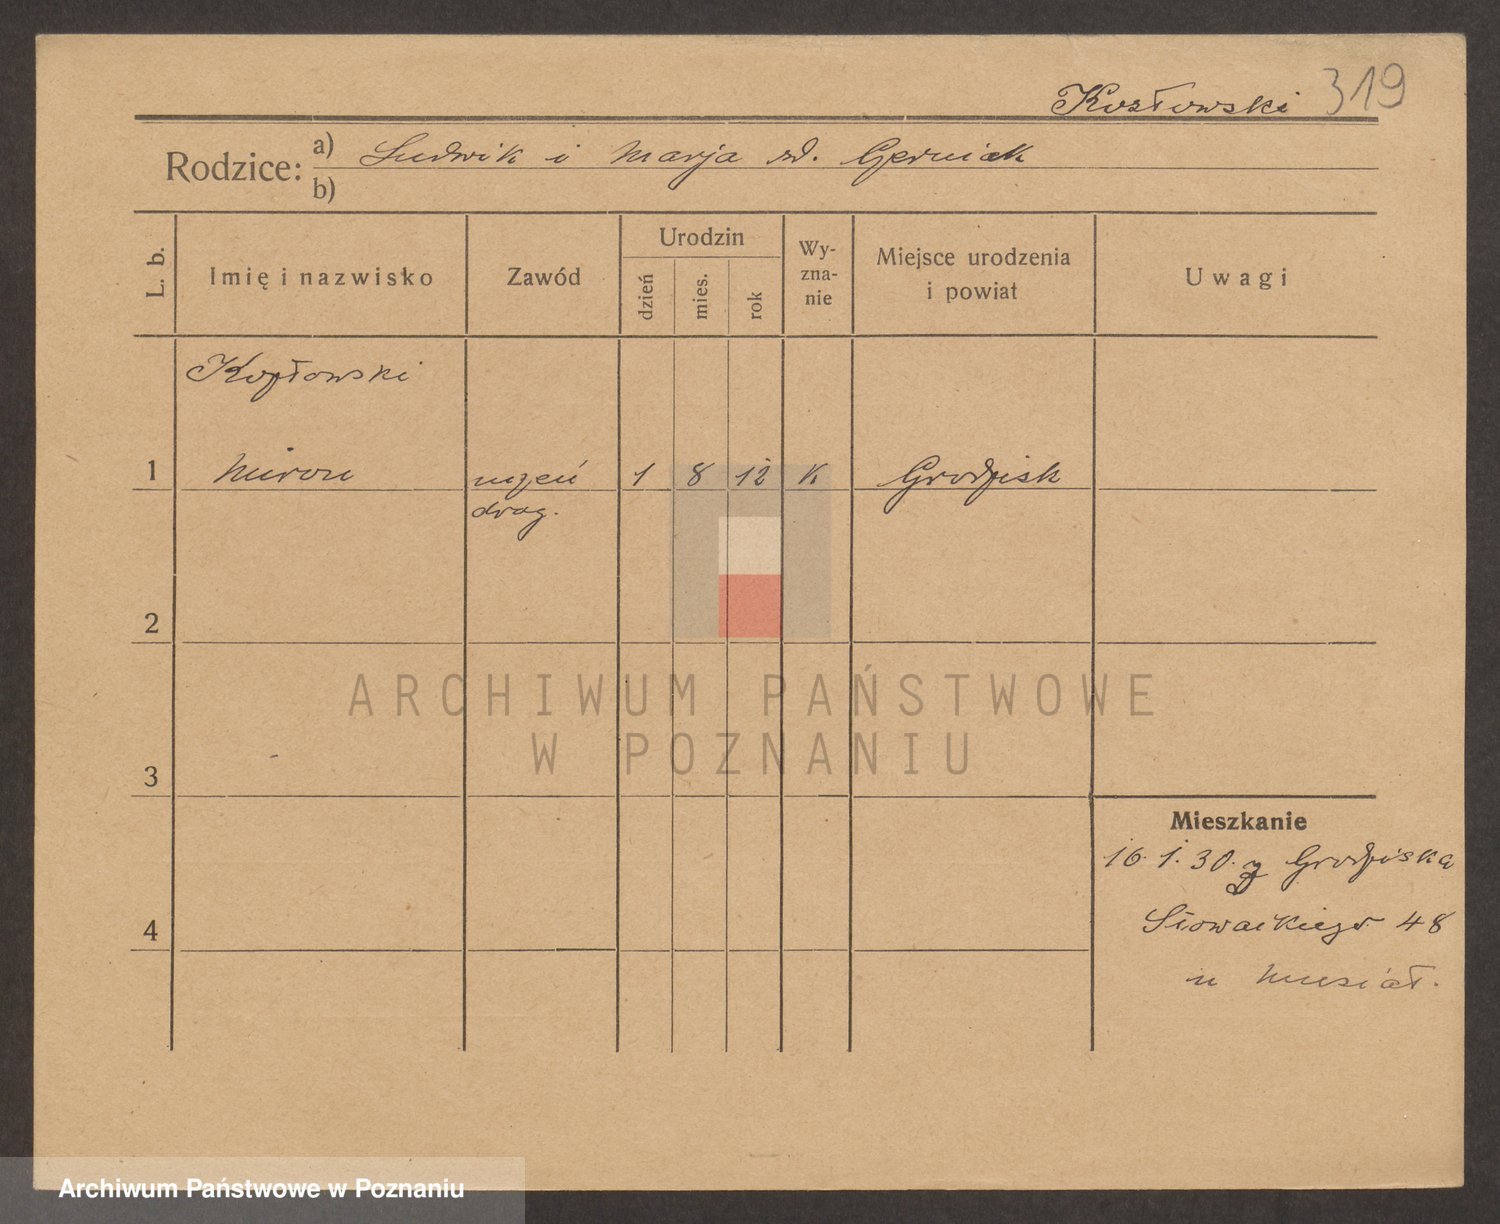 Kozłowski 319
Rodzice: a) Ludwik i Marja zd. Gerniak
b)
L. b.
Imię i nazwisko
Zawód
Urodzin
dzień
mies.
rok
Wy-
zna-
nie
Miejsce urodzenia
i powiat
Uwagi
Kozłowski
1 Miron uczeń 1 8 12 k. Grodzisk
drog.
2
3
4
Mieszkanie
16.1.30. z Grodziska
Słowackiego 48
u Musiał.
ARCHIWUM PAŃSTWOWE
W POZNANIU
Archiwum Państwowe w Poznaniu